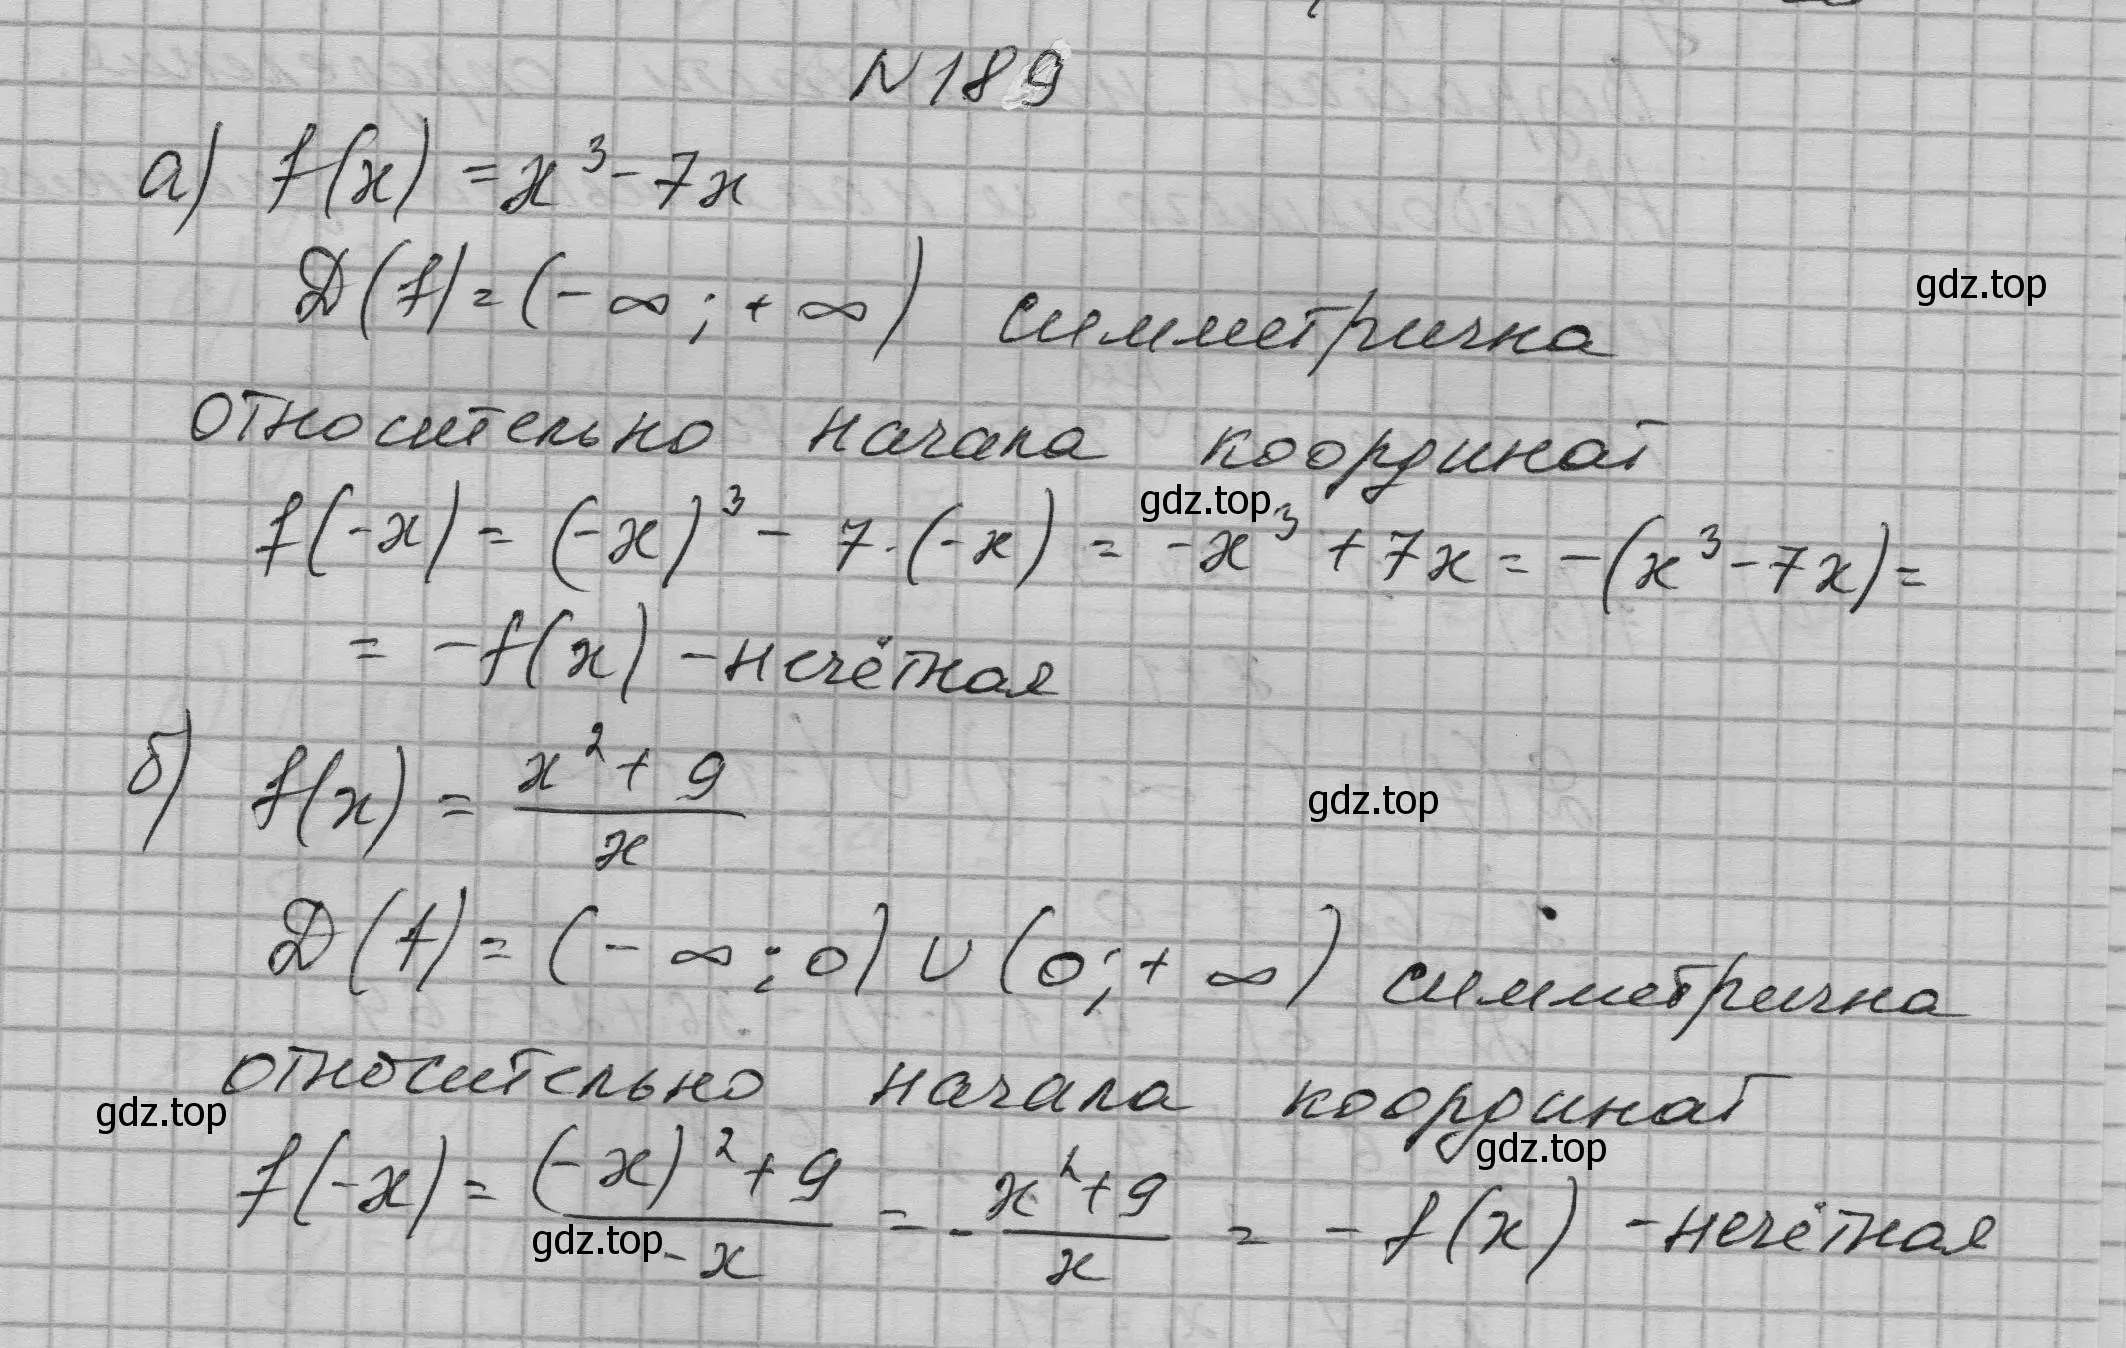 N189
а) f(x) = x³ - 7x
D(f) = (-∞; +∞) симметрична
gdz.top
относительно начала координат
gdz.top
f(-x) = (-x)³ - 7·(-x) = -x³ + 7x = -(x³ - 7x) =
= -f(x) - нечётная
б) f(x) = (x² + 9)/x
gdz.top
D(f) = (-∞; 0) ∪ (0; +∞) симметрична
относительно начала координат
gdz.top
gdz.top
f(-x) = ((-x)² + 9)/(-x) = - (x² + 9)/x = - f(x) - нечётная
gdz.top